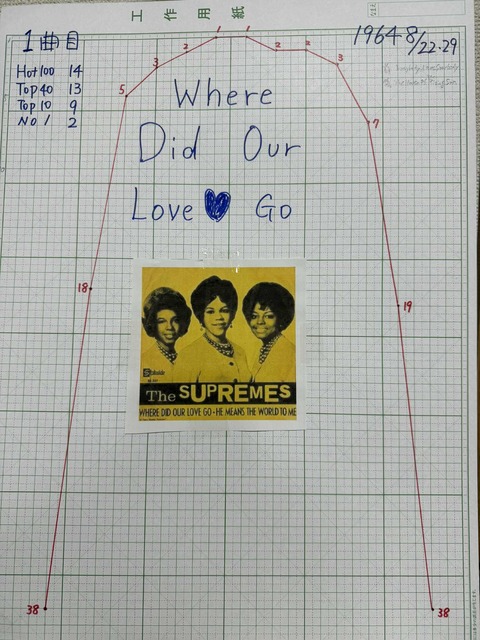 工作用紙
1曲目
1964 8/22.29
Hot100 14
Top40 13
Top10 9
No 1 2
1 1
2 2 2
3 3
5
7
18
19
38 38
Where
Did Our
Love Go
Stateside
The SUPREMES
WHERE DID OUR LOVE GO · HE MEANS THE WORLD TO ME